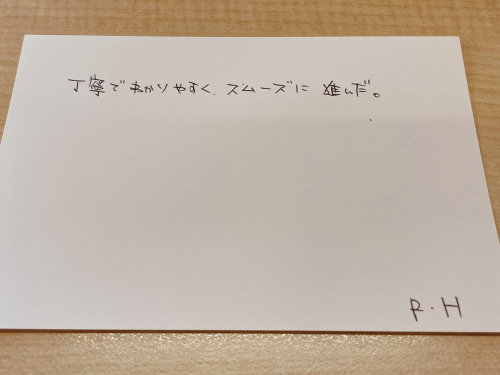 丁寧でわかりやすく、スムーズに進んだ。
R.H